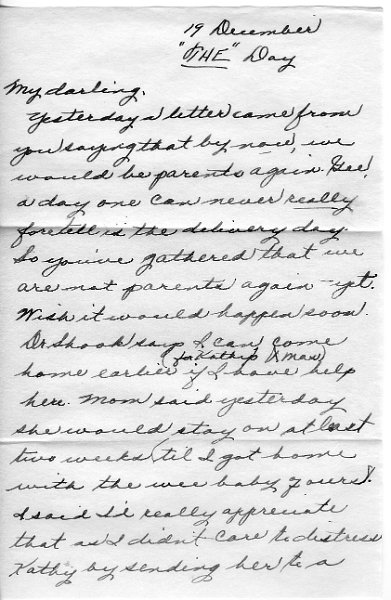 19 December
"THE" Day
My darling,
Yesterday a letter came from
you saying that by now, we
would be parents again. Gee!
a day one can never really
foretell is the delivery day.
So you've gathered that we
are not parents again - yet.
Wish it would happen soon.
Dr Shook says I can come
(for Kathy's Xmas)
home earlier if I have help
here. Mom said yesterday
she would stay on at least
two weeks (til I got home
with the wee baby yours).
I said I'd really appreciate
that as I didn't care to distress
Kathy by sending her to a